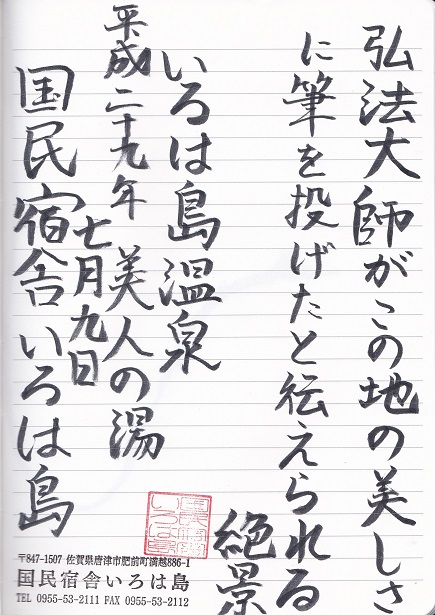 弘法大師がこの地の美しさ
に筆を投げたと伝えられる
絶景
いろは島温泉
美人の湯
平成二十九年
七月九日
国民宿舎いろは島
〒847-1507 佐賀県唐津市肥前町満越886-1
国民宿舎いろは島
TEL 0955-53-2111 FAX 0955-53-2112